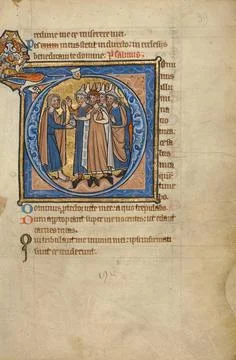 redime me et miserere mei.
Pes enim meus stetit in directo: in ecclesiis
benedicam te domine. Psalmus.
Domi
nus
illu
mi
na
tio
mea.
et sa
lus
mea
que
time
bo.
Dominus protector vite mee: a quo trepidabo.
Dum appropiant super me nocentes: ut edant
carnes meas.
Qui tribulant me inimici mei: ipsi infirmati
sunt et ceciderunt.